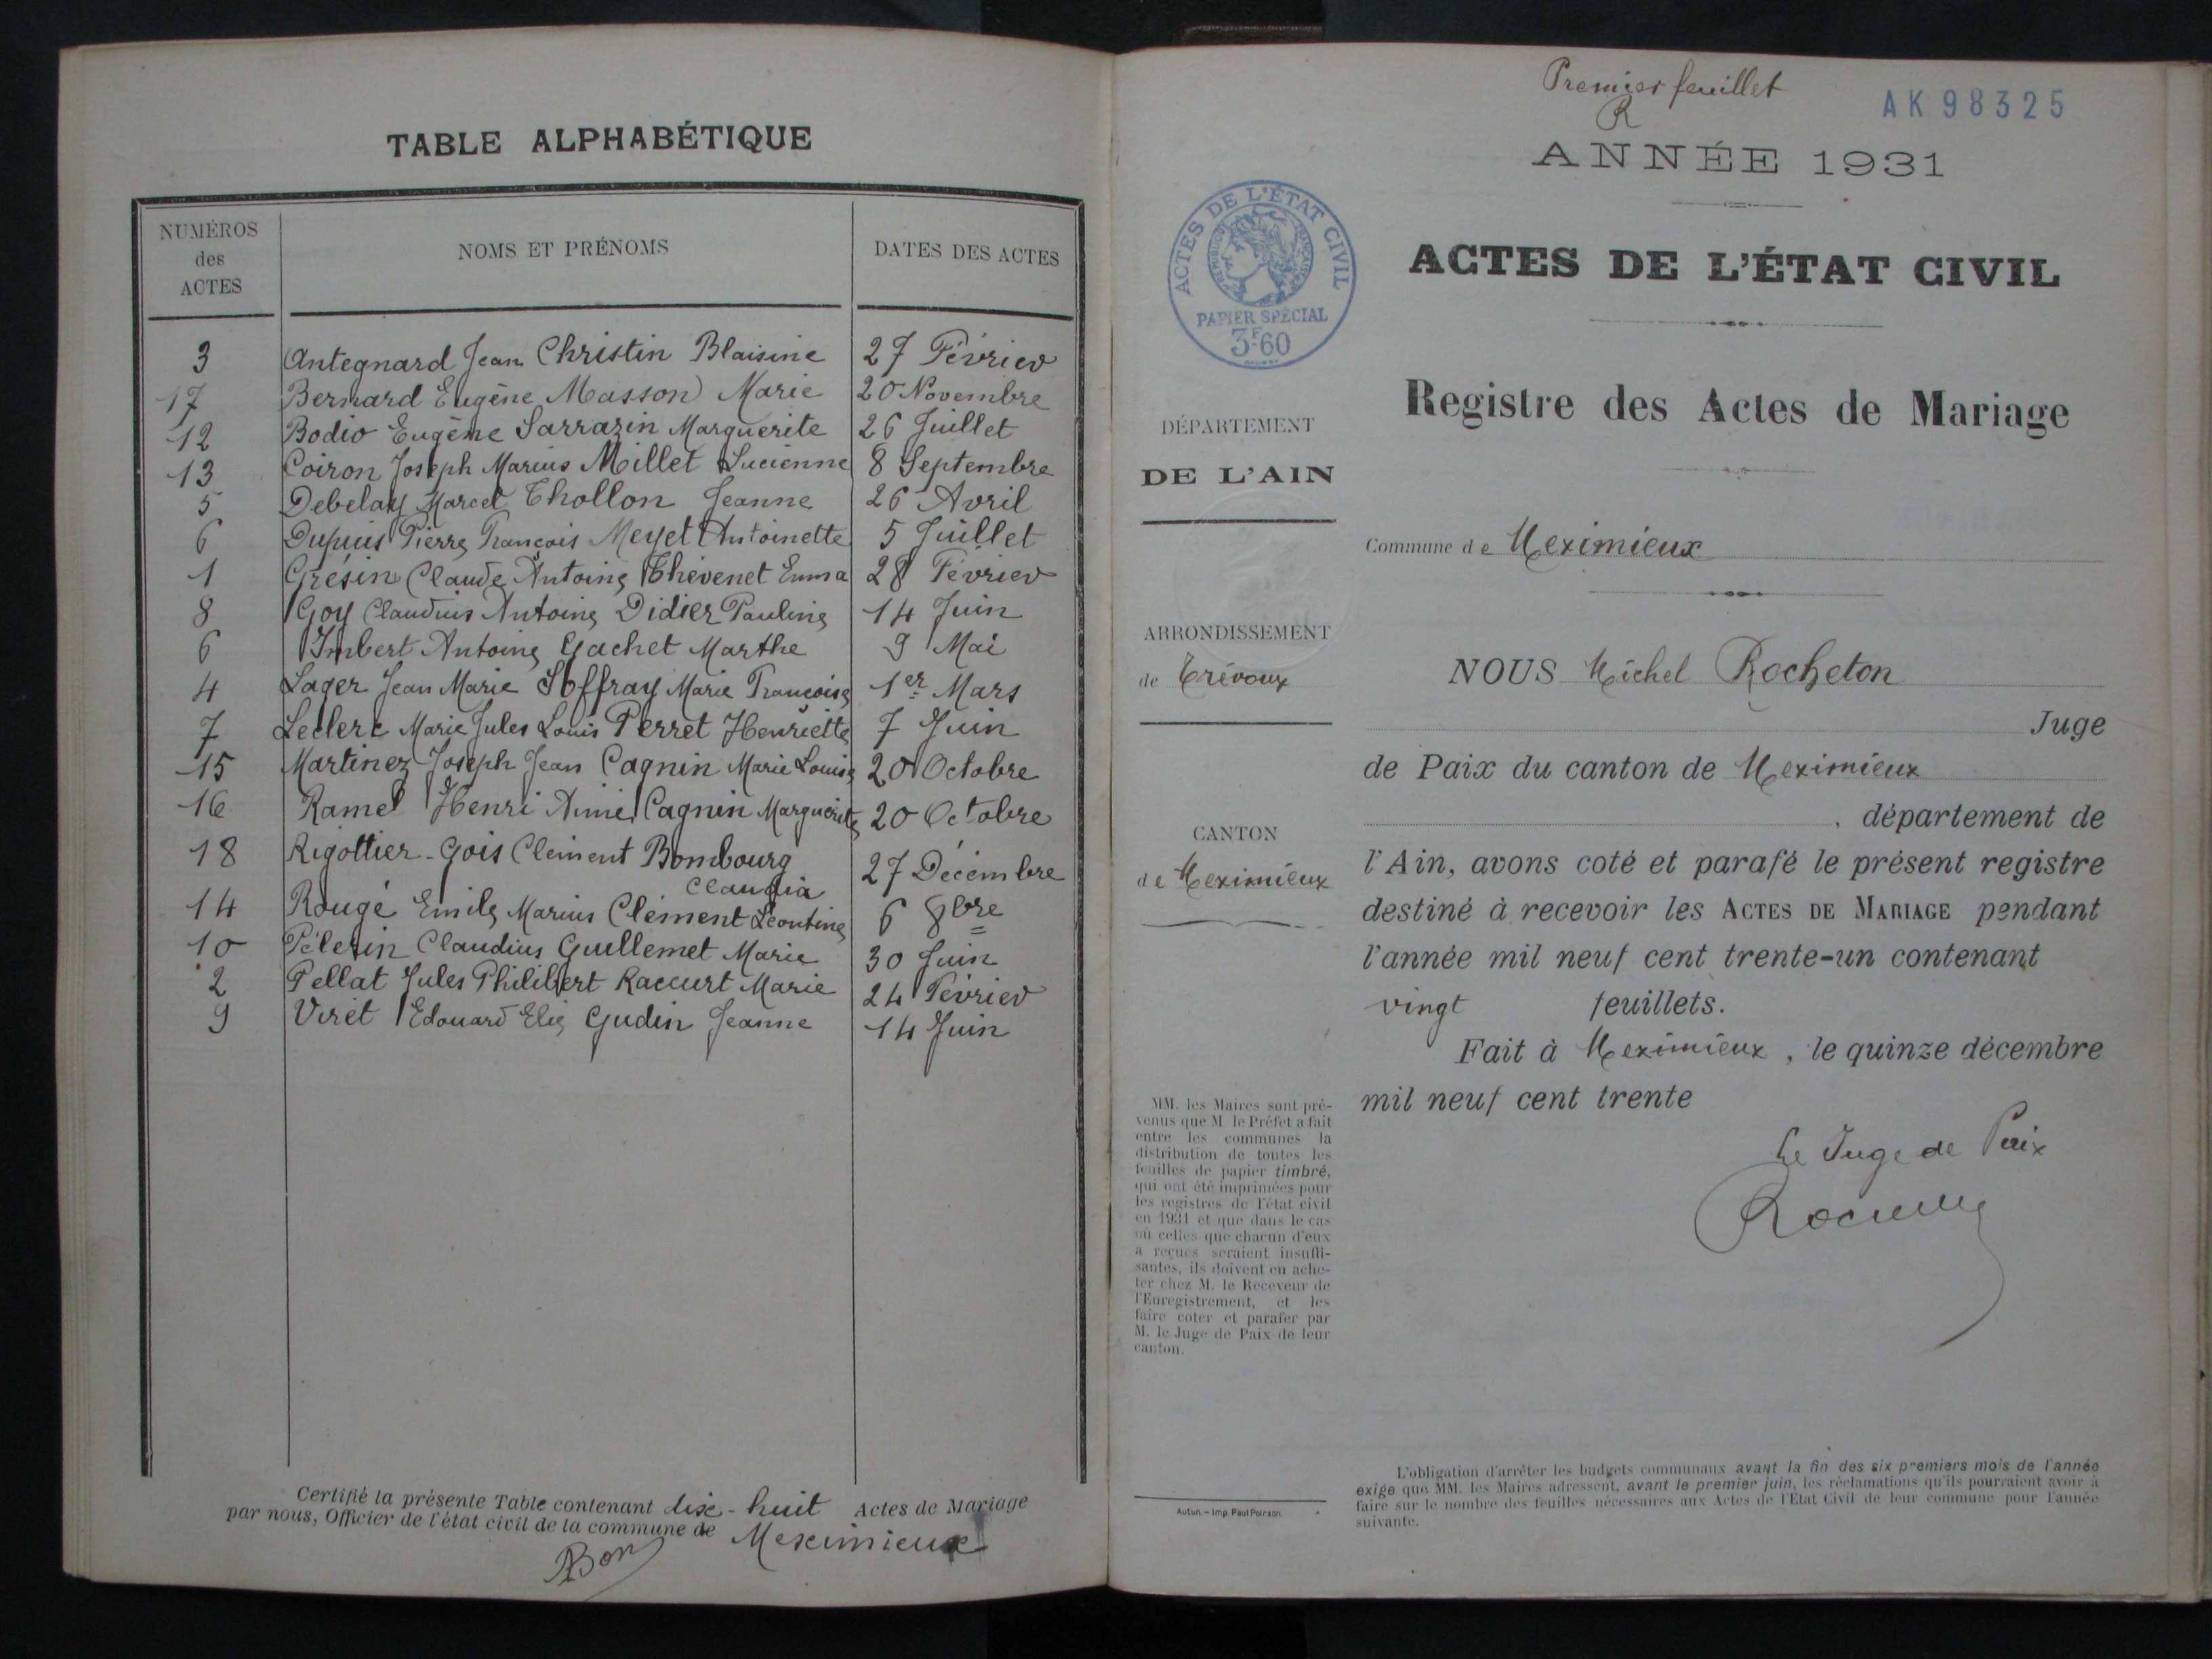 TABLE ALPHABÉTIQUE
NUMÉROS
des
ACTES
NOMS ET PRÉNOMS
DATES DES ACTES
3 Antegnard Jean Christin Blaisine 27 Février
17 Bernard Eugène Masson Marie 20 Novembre
12 Bodio Eugène Sarrazin Marguerite 26 Juillet
13 Coiron Joseph Marius Millet Lucienne 8 Septembre
5 Debelay Marcel Thollon Jeanne 26 Avril
6 Dupuis Pierre François Meyet Antoinette 5 Juillet
1 Grésin Claude Antoine Thévenet Emma 28 Février
8 Goy Claudius Antoine Didier Pauline 14 Juin
6 Imbert Antoine Gachet Marthe 9 Mai
4 Lager Jean Marie Soffray Marie Françoise 1er Mars
7 Leclerc Marie Jules Louis Perret Henriette 7 Juin
15 Martinez Joseph Jean Cagnin Marie Louise 20 Octobre
16 Ramel Henri Aimé Cagnin Marguerite 20 Octobre
18 Rigottier-Gois Clément Bombourg 27 Décembre
Claudia
14 Rougé Emile Marius Clément Léontine 6 8bre
10 Pélerin Claudius Guillemet Marie 30 Juin
2 Pellat Jules Philibert Raccurt Marie 24 Février
9 Viret Edouard Elie Gudin Jeanne 14 Juin
Certifié la présente Table contenant dix-huit Actes de Mariage
par nous, Officier de l'état civil de la commune de Meximieux
Premier feuillet
R
AK 98325
ANNÉE 1931
ACTES DE L'ÉTAT CIVIL
RÉPUBLIQUE FRANÇAISE
PAPIER SPÉCIAL
3F60
ACTES DE L'ÉTAT CIVIL
Registre des Actes de Mariage
DÉPARTEMENT
DE L'AIN
Commune de Meximieux
ARRONDISSEMENT
de Trévoux
NOUS Michel Rocheton
Juge
de Paix du canton de Meximieux
, département de
CANTON
de Meximieux
l'Ain, avons coté et parafé le présent registre
destiné à recevoir les ACTES DE MARIAGE pendant
l'année mil neuf cent trente-un contenant
vingt feuillets.
Fait à Meximieux, le quinze décembre
mil neuf cent trente
Le Juge de Paix
MM. les Maires sont pré-
venus que M. le Préfet a fait
entre les communes la
distribution de toutes les
feuilles de papier timbré,
qui ont été imprimées pour
les registres de l'état civil
en 1931 et que dans le cas
où celles que chacun d'eux
a reçues seraient insuffi-
santes, ils doivent en ache-
ter chez M. le Receveur de
l'Enregistrement, et les
faire coter et parafer par
M. le Juge de Paix de leur
canton.
Autun. – Imp. Paul Poirson
L'obligation d'arrêter les budgets communaux avant la fin des six premiers mois de l'année
exige que MM. les Maires adressent, avant le premier juin, les réclamations qu'ils pourraient avoir à
faire sur le nombre des feuilles nécessaires aux Actes de l'Etat Civil de leur commune pour l'année
suivante.